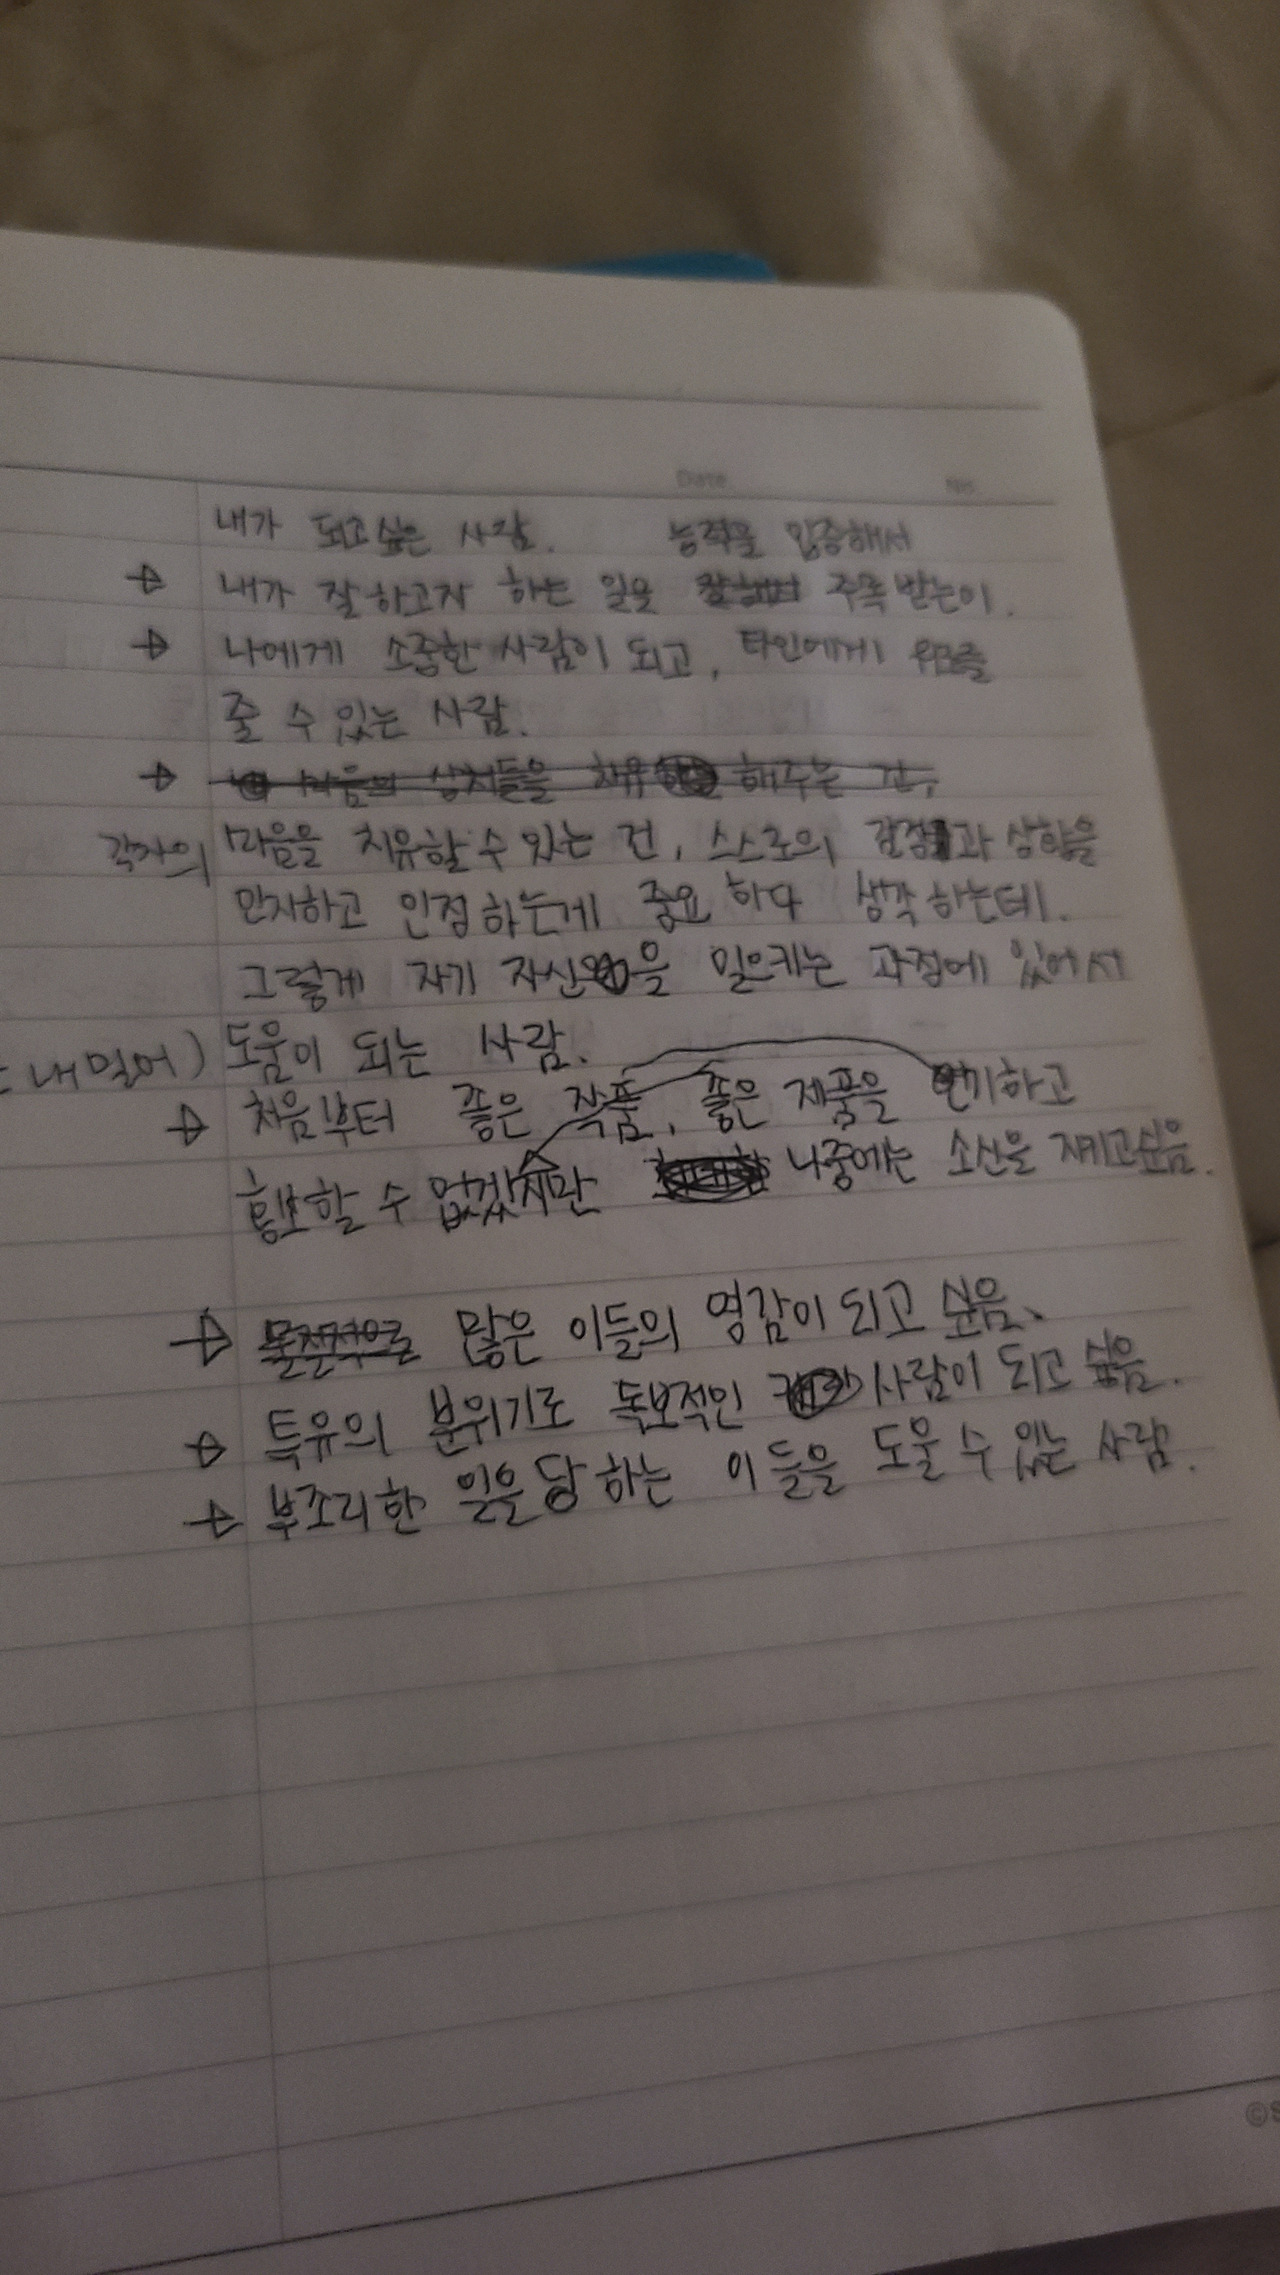 Date No
내가 되고싶은 사람. 능력을 입증해서
→ 내가 잘하고자 하는 일을 잘해서 주목 받는이.
→ 나에게 소중한 사람이 되고, 타인에게 위로를
줄 수 있는 사람.
→ 마음의 상처들을 치유 해주는 건,
각자의 마음을 치유할 수 있는 건, 스스로의 감정과 상황을
인지하고 인정하는게 중요하다 생각하는데.
그렇게 자기 자신을 일으키는 과정에 있어서
내밀어) 도움이 되는 사람.
→ 처음부터 좋은 작품, 좋은 제품을 연기하고
홍보할 수 없겠지만 나중에는 소신을 지키고싶음.
→ 물질적으로 많은 이들의 영감이 되고 싶음.
→ 특유의 분위기로 독보적인 사람이 되고 싶음.
→ 부조리한 일을 당하는 이들을 도울 수 있는 사람.